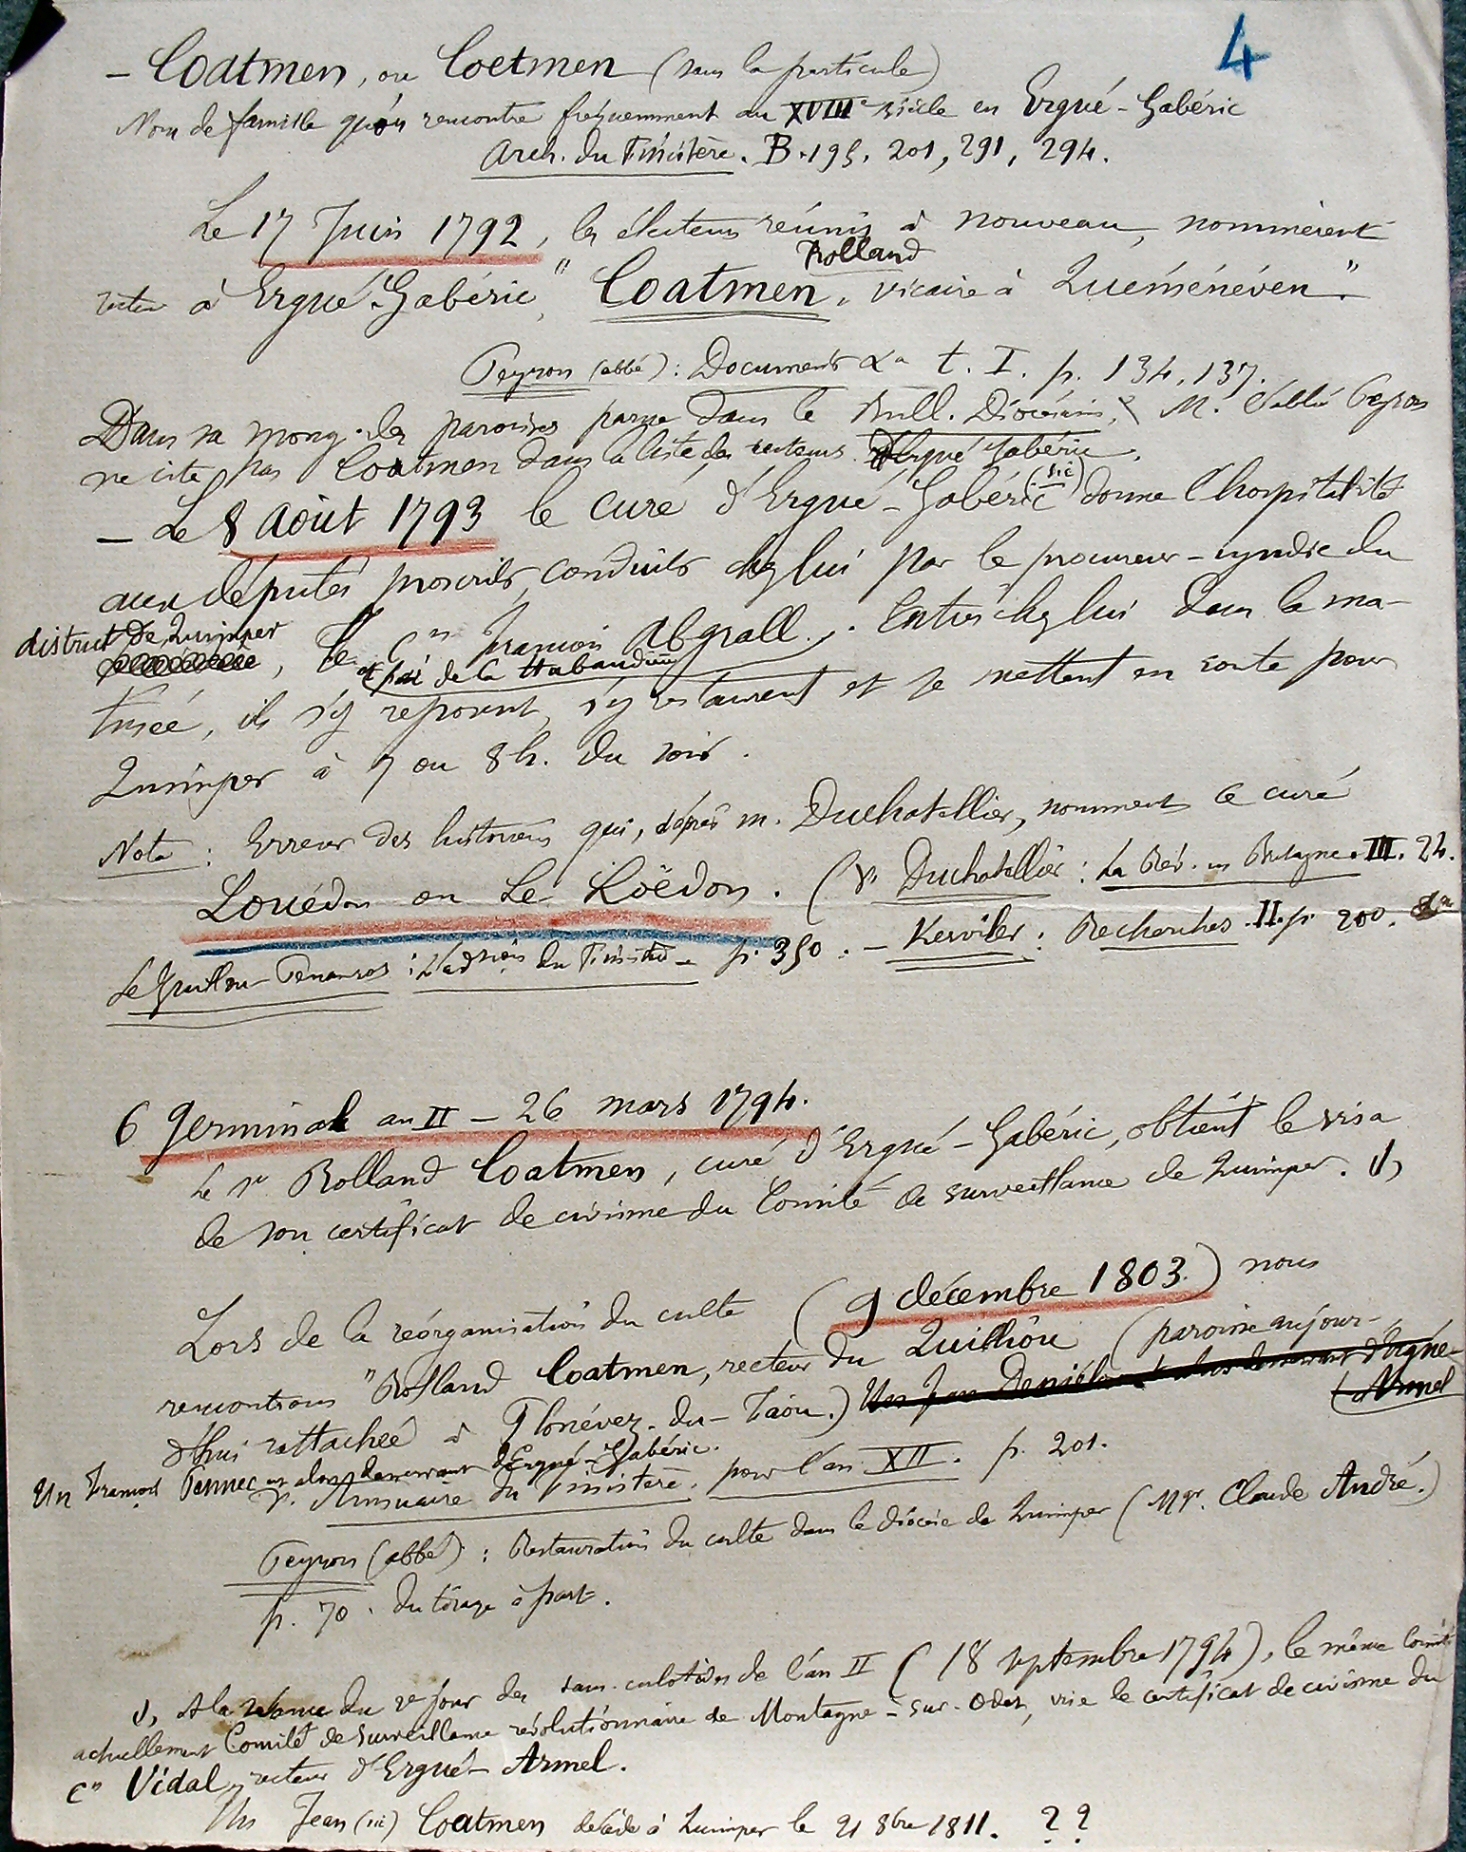 4
— Coatmen, ou Coetmen (sans la particule)
Nom de famille qu'on rencontre fréquemment au XVIIIe siècle en Ergué-Gabéric
Arch. du Finistère. B. 195, 201, 291, 294.
Le 17 Juin 1792, les électeurs réunis à nouveau, nommèrent
Rolland
recteur à Ergué-Gabéric, "Coatmen, vicaire à Quéménéven".
Peyron (abbé) : Documents &a t. I. p. 134, 137.
Dans sa monog. des paroisses parue dans le Bull. Diocésain, M. l'abbé Peyron
ne cite pas Coatmen dans la liste des recteurs d'Ergué Gabéric.
— Le 8 Août 1793 le curé d'Ergué-Gabéric (sic) donne l'hospitalité
aux députés proscrits, conduits chez lui par le procureur-syndic du
district de Quimper, le Cen François Abgrall. Entrés chez lui dans la ma-
et par de la Hubaudière
tinée, ils s'y reposent, s'y restaurent et se mettent en route pour
Quimper à 7 ou 8 h. du soir.
Nota : Erreur des historiens qui, d'après M. Duchatellier, nomment ce curé
Louédon ou Le Loëdon. (V. Duchatellier : La Rév. en Bretagne. III. 24.
Le Guillou-Penanros : L'adtion du Finistère p. 350. — Kerviler : Recherches. II. p. 200.
6 Germinal an II — 26 mars 1794.
Le Sr Rolland Coatmen, curé d'Ergué-Gabéric, obtient le visa
de son certificat de civisme du Comité de surveillance de Quimper. (1)
Lors de la réorganisation du culte (9 décembre 1803.) nous
rencontrons "Rolland Coatmen, recteur du Quilliou (paroisse aujour-
d'hui rattachée à Plonévez-du-Faou.) Un Jean Daniélou est alors desservant d'Ergué-
Armel
Un François Pennec est alors desservant d'Ergué-Gabéric.
V. Annuaire du Finistère, pour l'an XII. p. 201.
Peyron (abbé) : Restauration du culte dans le diocèse de Quimper (Mgr. Claude André.)
p. 70. du tirage à part.
(1) A la séance du 2e jour des sans-culotides de l'an II (18 septembre 1794), le même Comité
actuellement Comité de surveillance révolutionnaire de Montagne-sur-Odet, vise le certificat de civisme du
Cen Vidal, recteur d'Ergué-Armel.
Un Jean (sic) Coatmen décédé à Quimper le 21 8bre 1811. ??